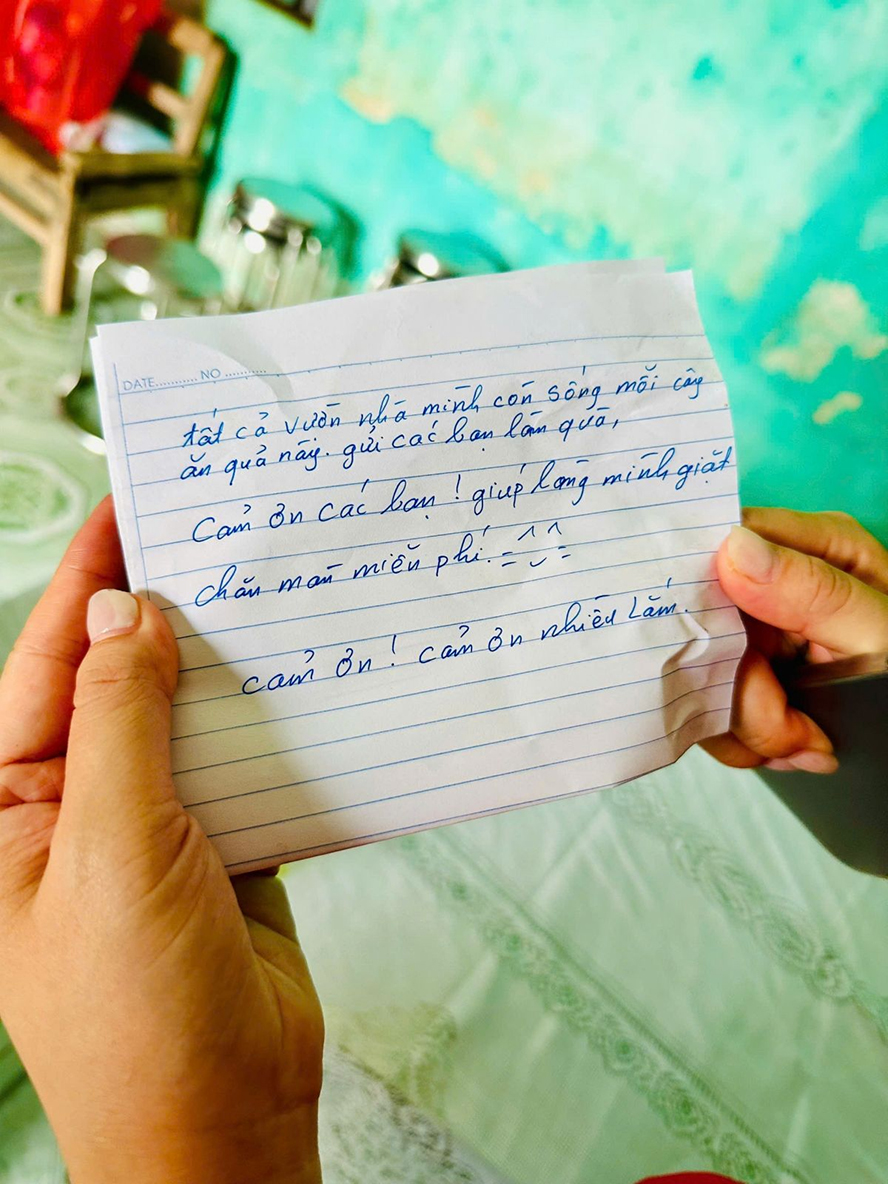 DATE........... NO ...........
tất cả vườn nhà mình còn sống mỗi cây
ăn quả này. gửi các bạn làm quà,
Cảm ơn các bạn ! giúp làng mình giặt
chăn màn miễn phí. =^ ^=
cảm ơn! cảm ơn nhiều Lắm.